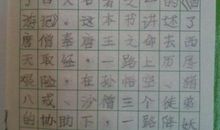 游记》。这本书讲述了
唐僧奉唐王文命去西
天取经，一路上历尽
艰险，在孙悟空、猪
八戒、沙僧三个徒弟
的协助下，一路降妖